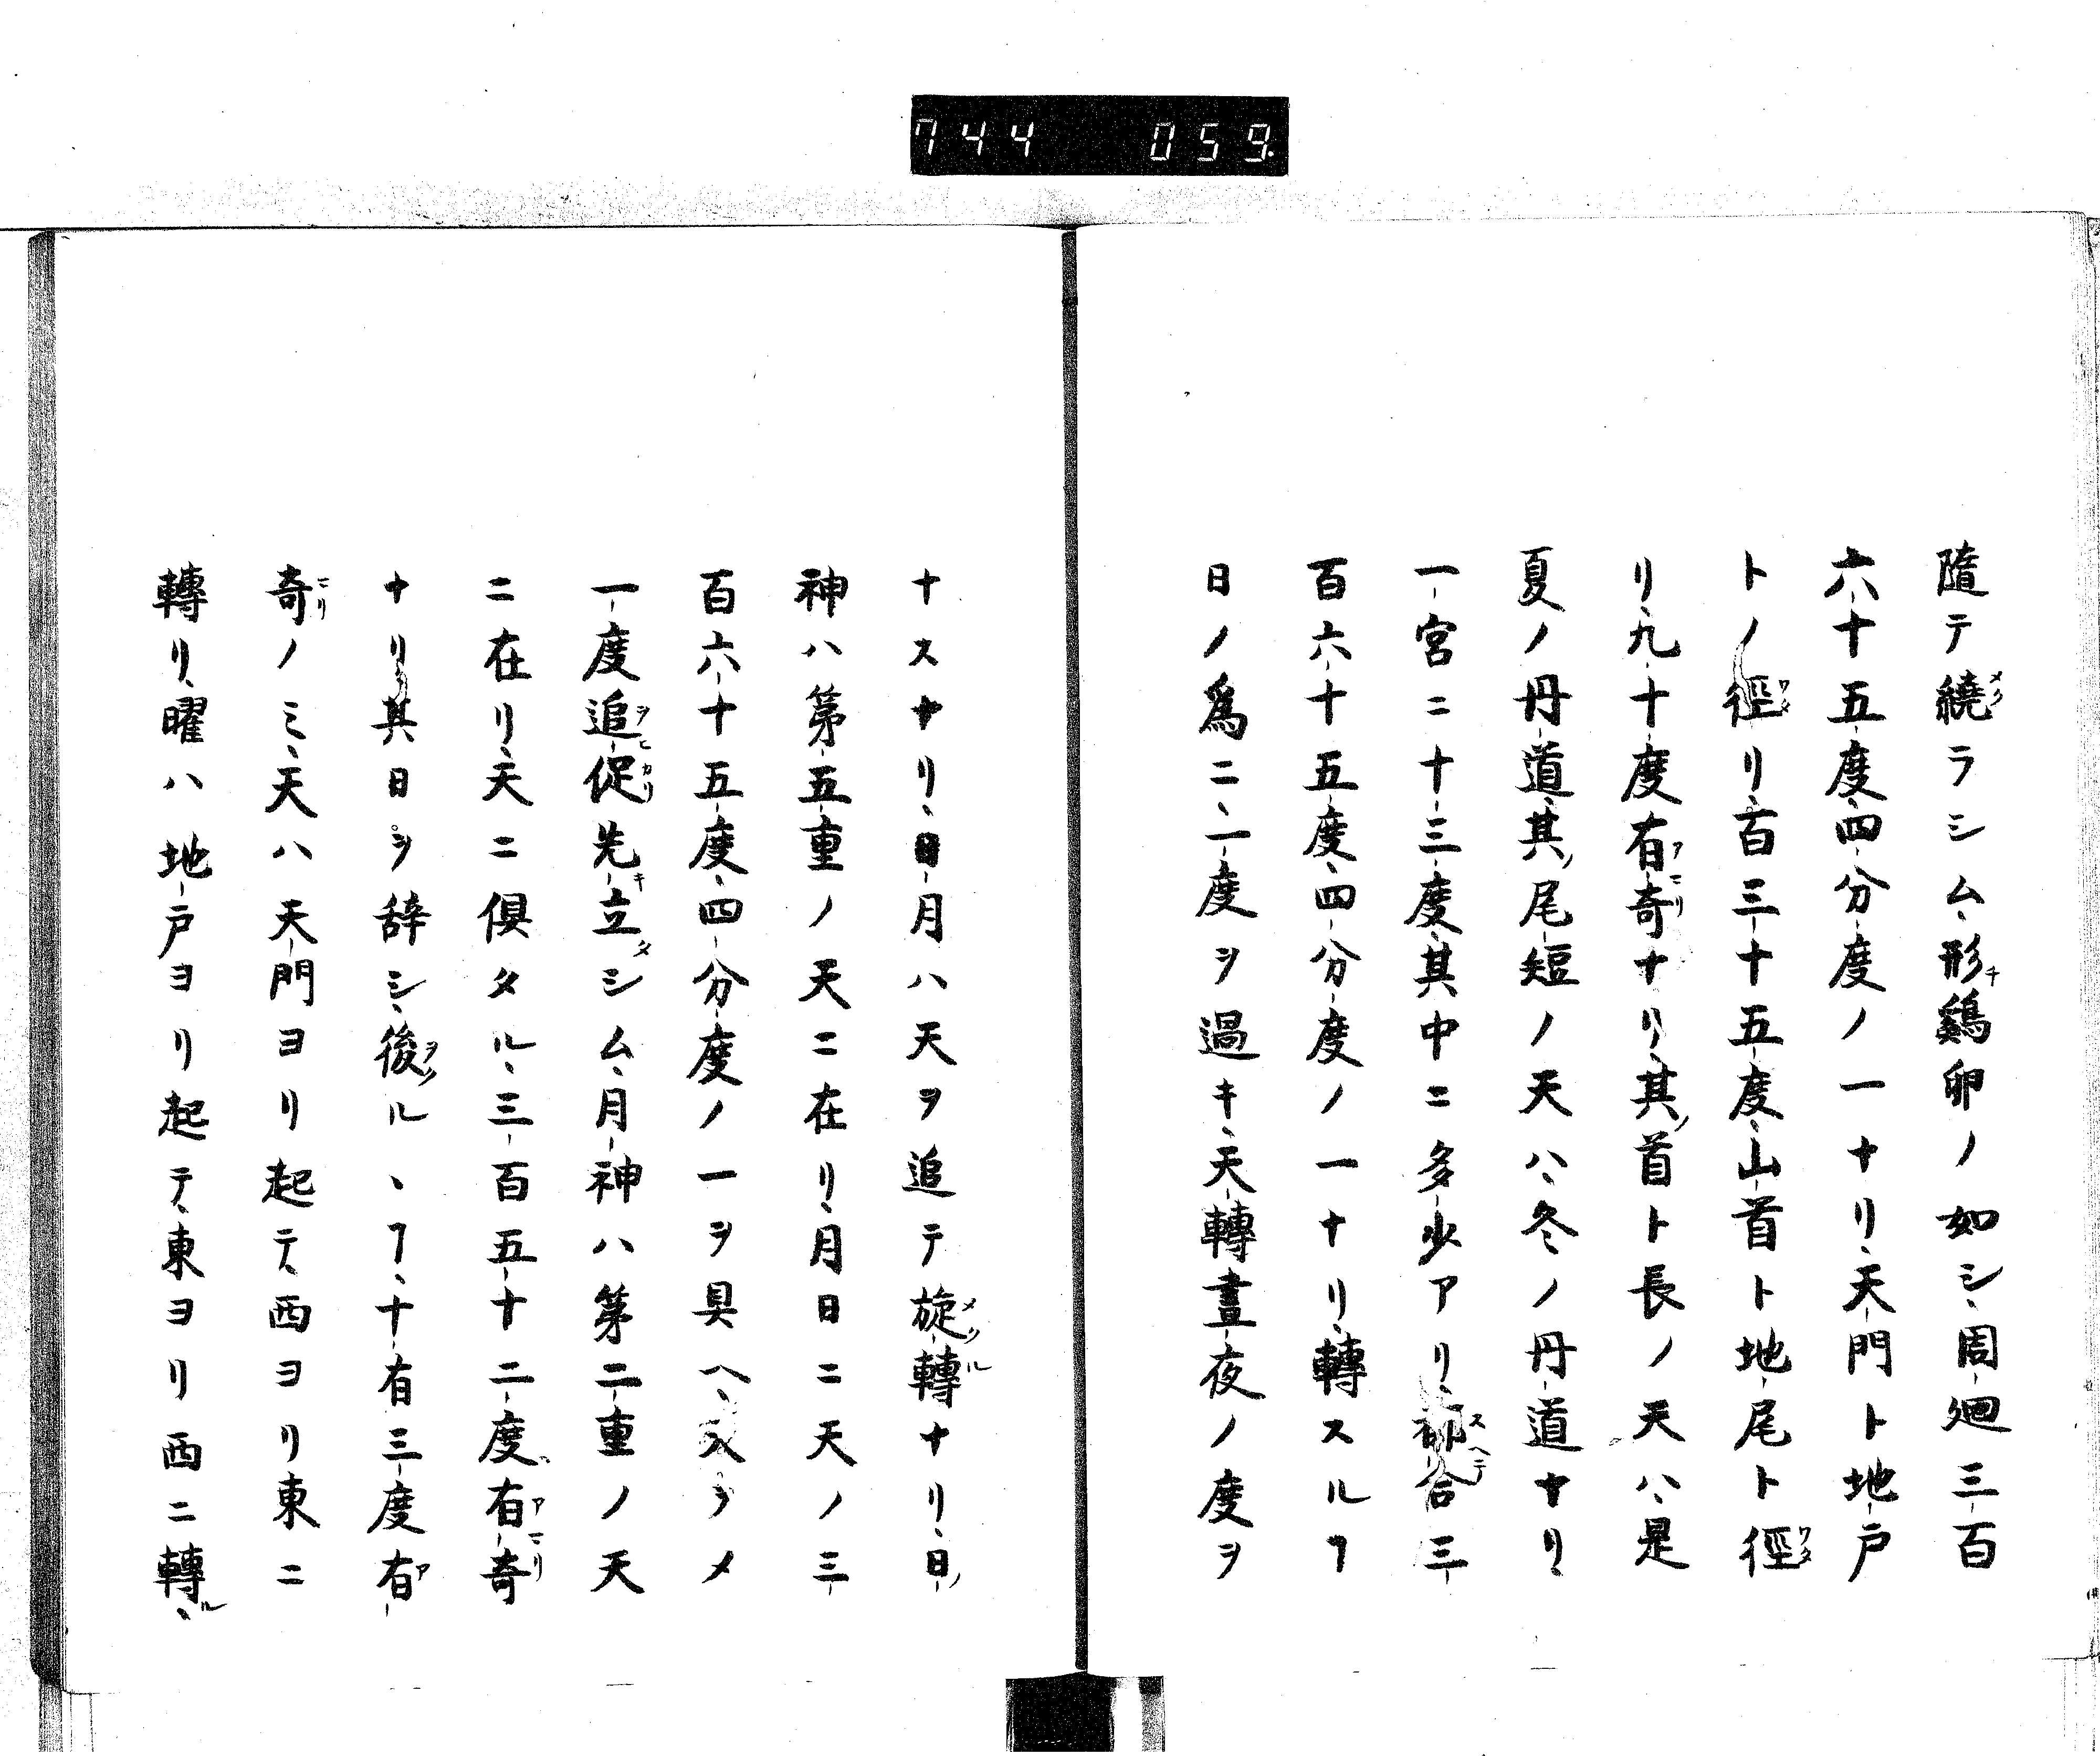 744 059
隨テ繞ラシム、形鷄卵ノ如シ、周廻三百
六十五度四分度ノ一ナリ、天門ト地戸
トノ徑リ、百三十五度、山首ト地尾ト徑
リ、九十度有奇ナリ、其ノ首ト長ノ天ハ、是
夏ノ丹道、其ノ尾短ノ天ハ、冬ノ丹道ナリ、
一宮ニ十三度、其中ニ多少アリ、合三
百六十五度、四分度ノ一ナリ、轉スルヿ
日ノ爲ニ、一度ヲ過キ、天轉晝夜ノ度ヲ
ナスナリ、日月ハ天ヲ追テ旋轉ナリ、日ノ
神ハ第五重ノ天ニ在リ、月日ニ天ノ三
百六十五度、四分度ノ一ヲ具ヘ、天ヲメ
一度追促先立シム、月神ハ第二重ノ天
ニ在リ、天ニ倶タル、三百五十二度有奇
ナリ其日ヲ辞シ、後ル、ヿ、十有三度有
奇ノミ、天ハ天門ヨリ起テ、西ヨリ東ニ
轉リ、曜ハ地戸ヨリ起テ、東ヨリ西ニ轉ル、